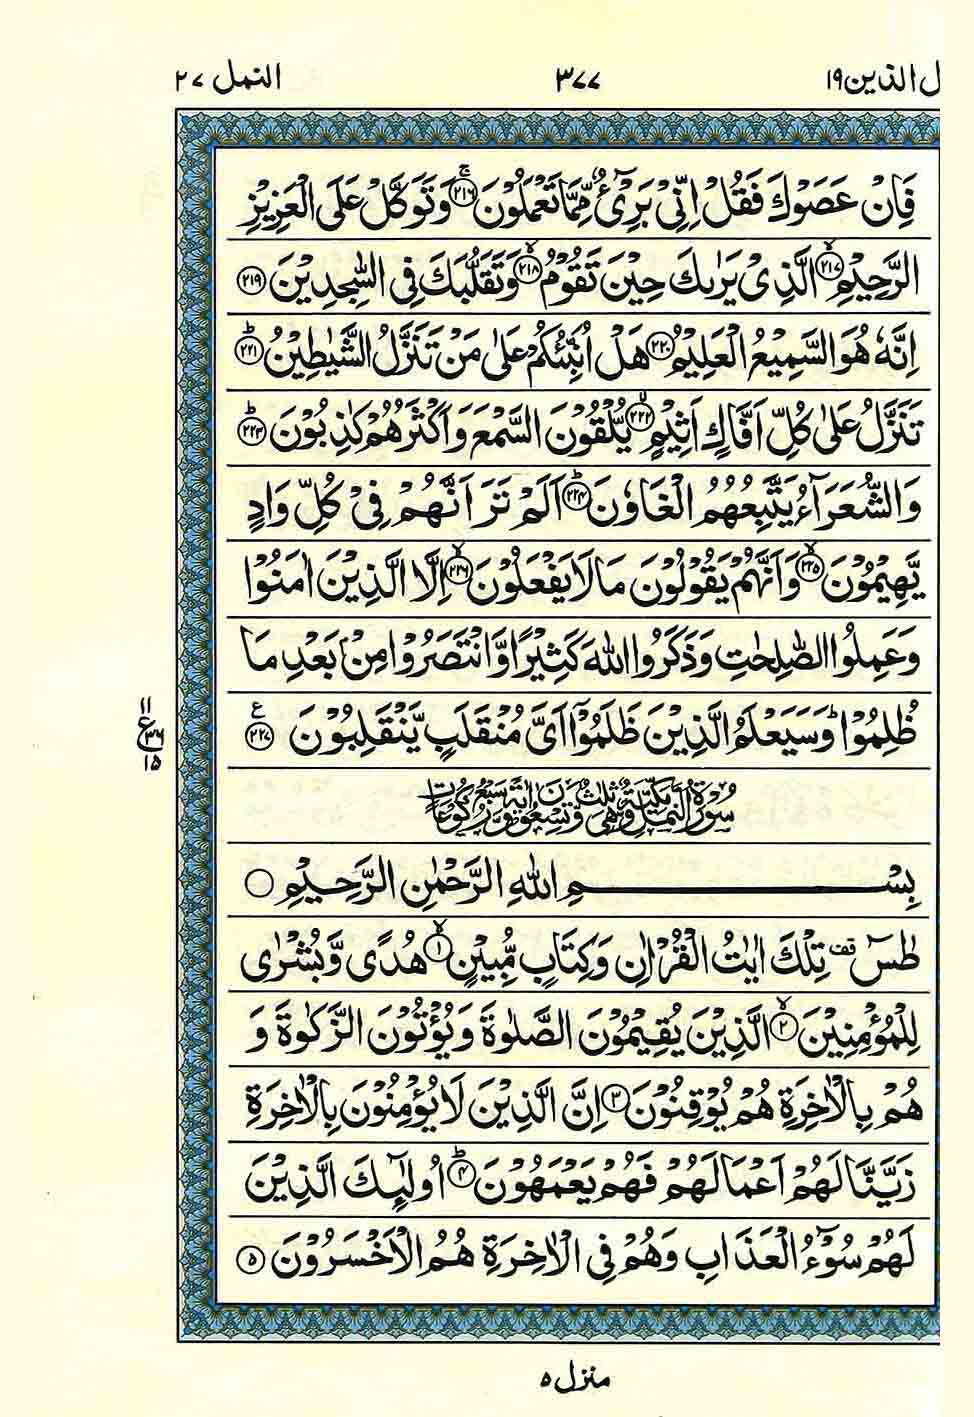 ل الذين ١٩ ٣٧٧ النمل ٢٧
فَاِنْ عَصَوْكَ فَقُلْ اِنِّيْ بَرِيْٓءٌ مِّمَّا تَعْمَلُوْنَ ﴿٢١٦﴾ۚ وَتَوَكَّلْ عَلَى الْعَزِيْزِ
الرَّحِيْمِ ﴿٢١٧﴾ۙ الَّذِيْ يَرٰىكَ حِيْنَ تَقُوْمُ ﴿٢١٨﴾ۙ وَتَقَلُّبَكَ فِي السّٰجِدِيْنَ ﴿٢١٩﴾
اِنَّهٗ هُوَ السَّمِيْعُ الْعَلِيْمُ ﴿٢٢٠﴾ هَلْ اُنَبِّئُكُمْ عَلٰى مَنْ تَنَزَّلُ الشَّيٰطِيْنُ ﴿٢٢١﴾ؕ
تَنَزَّلُ عَلٰى كُلِّ اَفَّاكٍ اَثِيْمٍ ﴿٢٢٢﴾ۙ يُّلْقُوْنَ السَّمْعَ وَاَكْثَرُهُمْ كٰذِبُوْنَ ﴿٢٢٣﴾ؕ
وَالشُّعَرَآءُ يَتَّبِعُهُمُ الْغَاوٗنَ ﴿٢٢٤﴾ؕ اَلَمْ تَرَ اَنَّهُمْ فِيْ كُلِّ وَادٍ
يَّهِيْمُوْنَ ﴿٢٢٥﴾ۙ وَاَنَّهُمْ يَقُوْلُوْنَ مَا لَا يَفْعَلُوْنَ ﴿٢٢٦﴾ۙ اِلَّا الَّذِيْنَ اٰمَنُوْا
وَعَمِلُوا الصّٰلِحٰتِ وَذَكَرُوا اللّٰهَ كَثِيْرًا وَّانْتَصَرُوْا مِنْۢ بَعْدِ مَا
ظُلِمُوْاؕ وَسَيَعْلَمُ الَّذِيْنَ ظَلَمُوْٓا اَيَّ مُنْقَلَبٍ يَّنْقَلِبُوْنَ ﴿٢٢٧﴾ ع
١١
ع ٣٦
١٥
سُوْرَةُ النَّمْلِ مَكِّيَّةٌ وَّهِيَ ثَلٰثٌ وَّتِسْعُوْنَ اٰيَةً وَّسَبْعُ رُكُوْعَاتٍ
بِسْمِ اللّٰهِ الرَّحْمٰنِ الرَّحِيْمِ ○
طٰسٓ قف تِلْكَ اٰيٰتُ الْقُرْاٰنِ وَكِتَابٍ مُّبِيْنٍ ﴿١﴾ۙ هُدًى وَّبُشْرٰى
لِلْمُؤْمِنِيْنَ ﴿٢﴾ۙ الَّذِيْنَ يُقِيْمُوْنَ الصَّلٰوةَ وَيُؤْتُوْنَ الزَّكٰوةَ وَ
هُمْ بِالْاٰخِرَةِ هُمْ يُوْقِنُوْنَ ﴿٣﴾ اِنَّ الَّذِيْنَ لَا يُؤْمِنُوْنَ بِالْاٰخِرَةِ
زَيَّنَّا لَهُمْ اَعْمَالَهُمْ فَهُمْ يَعْمَهُوْنَ ﴿٤﴾ؕ اُولٰٓئِكَ الَّذِيْنَ
لَهُمْ سُوْٓءُ الْعَذَابِ وَهُمْ فِي الْاٰخِرَةِ هُمُ الْاَخْسَرُوْنَ ﴿٥﴾
منزل ٥